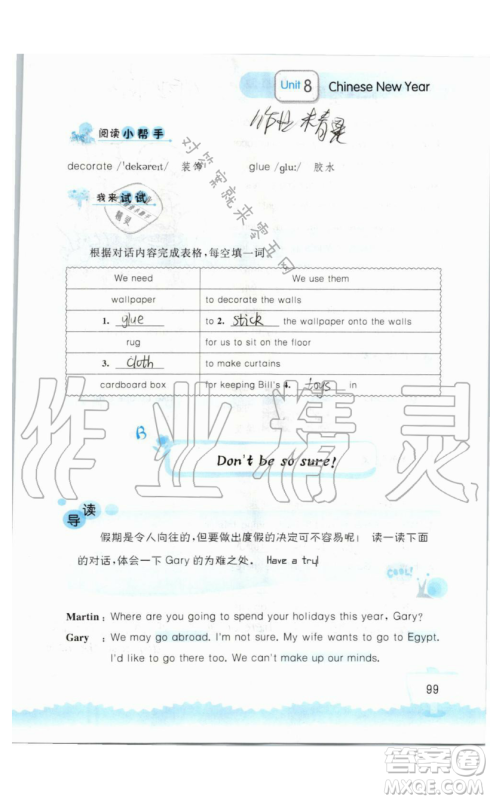 Unit 8 Chinese New Year
阅读小帮手
decorate /'dekəreɪt/ 装饰 glue /ɡluː/ 胶水
对答案就来零五网
我来试试
根据对话内容完成表格，每空填一词。
We need We use them
wallpaper to decorate the walls
1. glue to 2. stick the wallpaper onto the walls
rug for us to sit on the floor
3. cloth to make curtains
cardboard box for keeping Bill's 4. toys in
作业精灵
B
Don't be so sure!
导读
假期是令人向往的，但要做出度假的决定可不容易呢！读一读下面
的对话，体会一下 Gary 的为难之处。Have a try!
COOL!
Martin: Where are you going to spend your holidays this year, Gary?
Gary : We may go abroad. I'm not sure. My wife wants to go to Egypt.
I'd like to go there too. We can't make up our minds.
99
答案圈
MXQE.COM